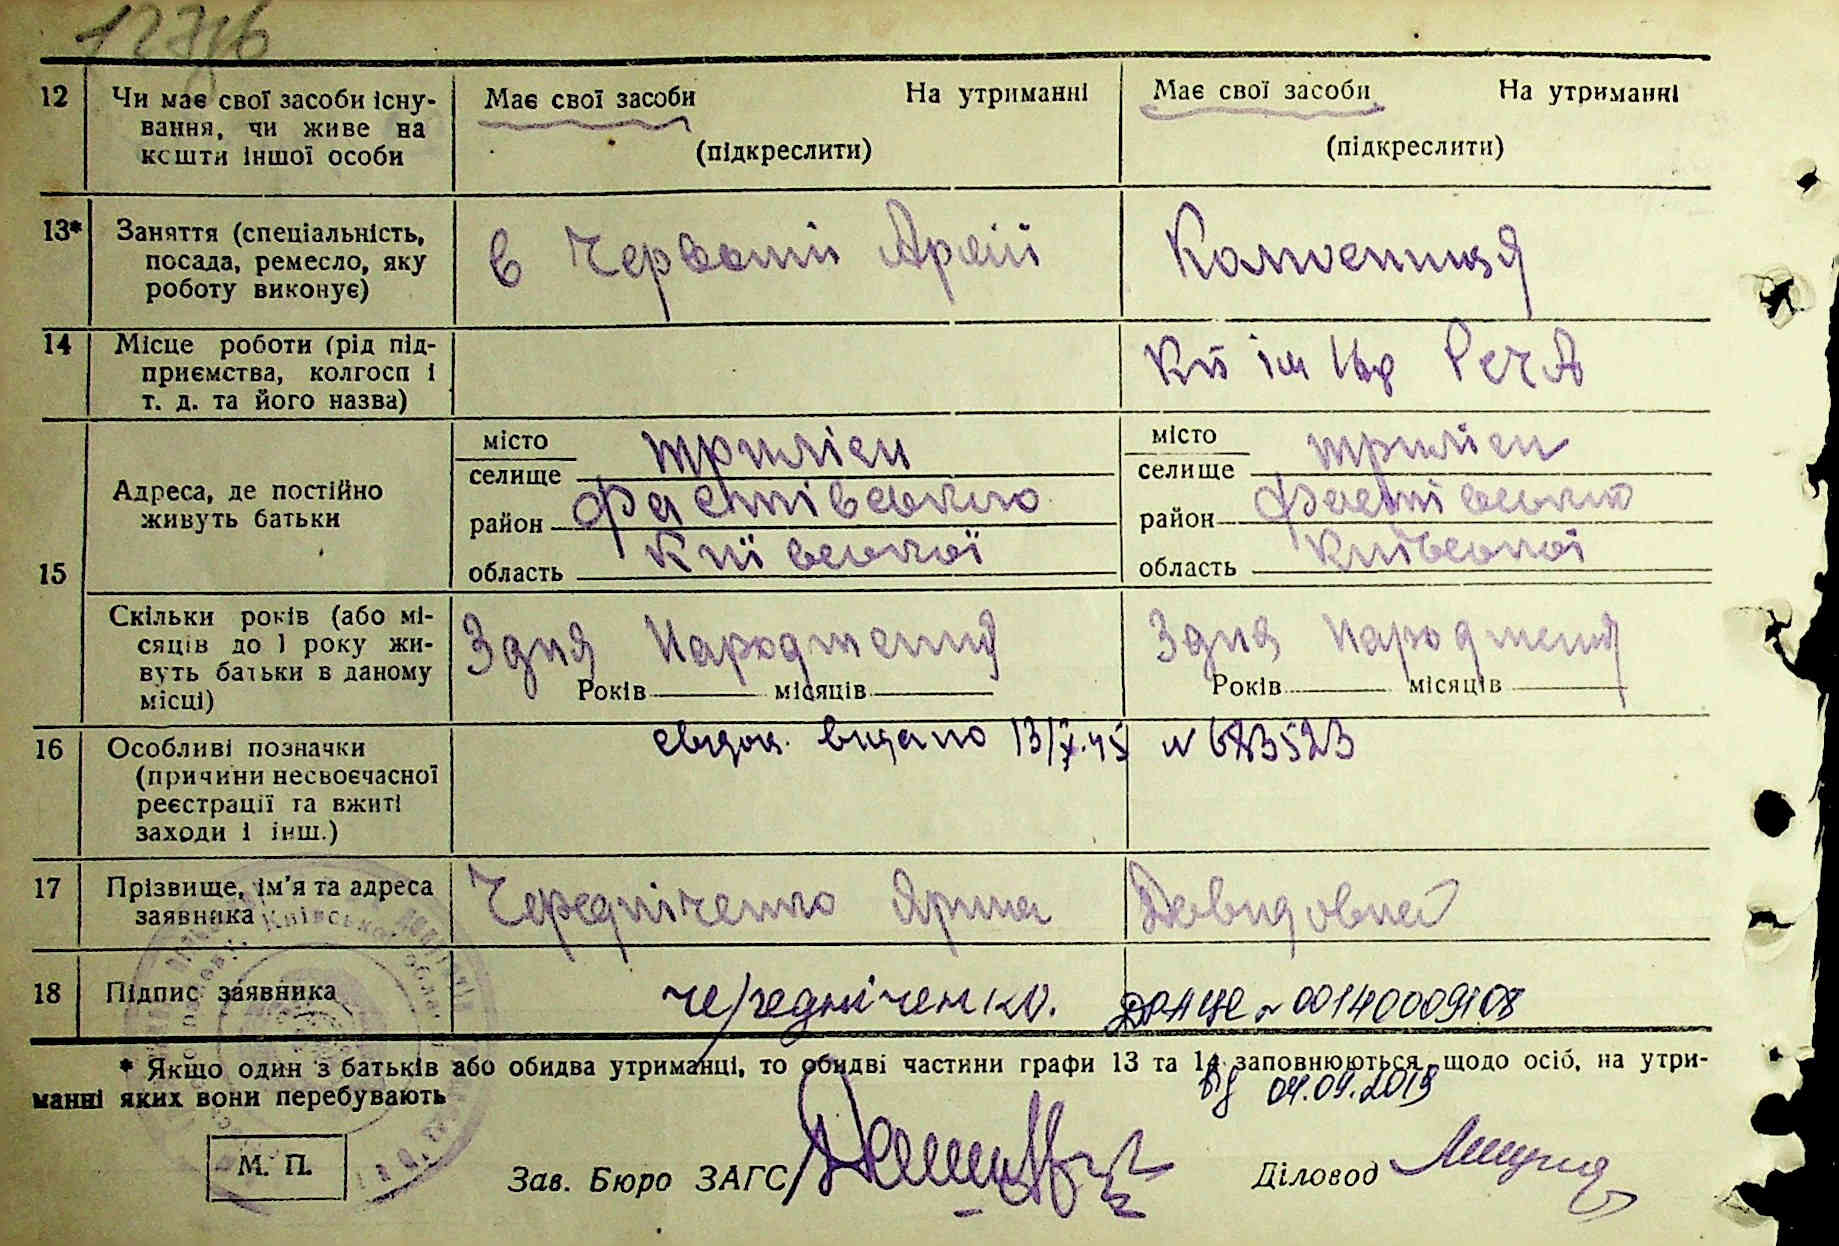 12 Чи має свої засоби існу-
вання, чи живе на
кошти іншої особи
Має свої засоби На утриманні
(підкреслити)
Має свої засоби На утриманні
(підкреслити)
13* Заняття (спеціальність,
посада, ремесло, яку
роботу виконує)
в Червоній Армії
Колгоспниця
14 Місце роботи (рід під-
приємства, колгосп і
т. д. та його назва)
ім
15 Адреса, де постійно
живуть батьки
місто
селище Триліси
район Фастівського
область Київської
місто
селище Триліси
район Фастівського
область Київської
Скільки років (або мі-
сяців до 1 року жи-
вуть батьки в даному
місці)
З дня народження
Років місяців
З дня народження
Років місяців
16 Особливі позначки
(причини несвоєчасної
реєстрації та вжиті
заходи і інш.)
свідоц. видано 13/X.45 № 683523
17 Прізвище, ім'я та адреса
заявника
Чередніченко Ярина Давидовна
18 Підпис заявника
Чередніченко. ДРАЦС № 00140009108
* Якщо один з батьків або обидва утриманці, то обидві частини графи 13 та 14 заповнюються щодо осіб, на утри-
манні яких вони перебувають
від 04.09.2015
М. П.
Зав. Бюро ЗАГС
Діловод